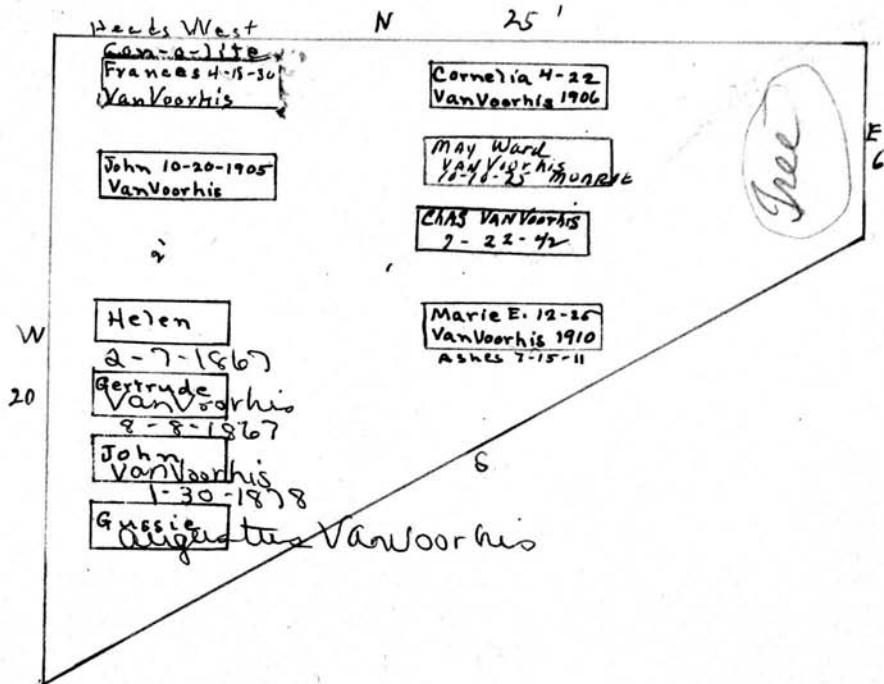 N 25'
Heads West
Con-o-lite
Frances 4-15-30
VanVoorhis
John 10-20-1905
VanVoorhis
2'
Helen
2-7-1867
Gertrude
VanVoorhis
8-8-1867
John
VanVoorhis
1-30-1878
Gussie
Augustus VanVoorhis
Cornelia 4-22
VanVoorhis 1906
MAY Ward
VAN Voorhis
10-10-25
ChAS VAN Voorhis
7-22-42
Marie E. 12-25
VanVoorhis 1910
Ashes 7-15-11
Tree
E
6
W
20
S